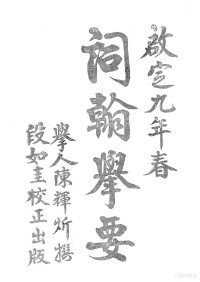 啟定九年春
詞翰舉要
舉人陳輝炘撰
段如圭校正出版